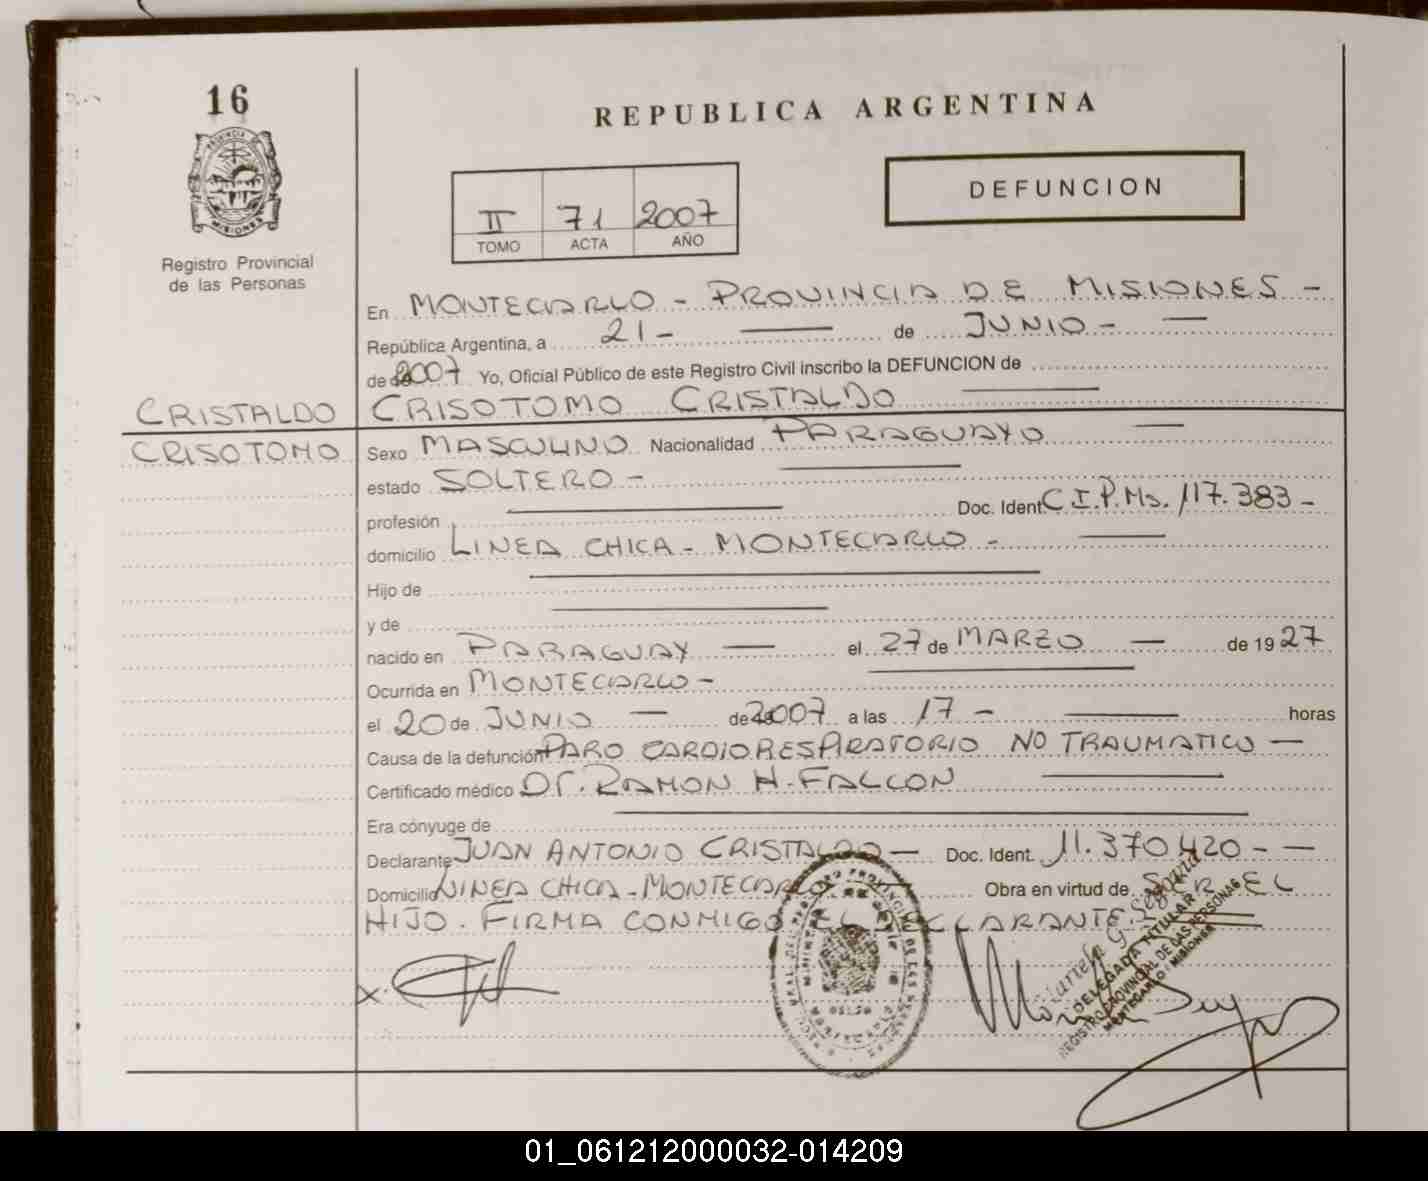 16
REPUBLICA ARGENTINA
PROVINCIA DE
MISIONES
Registro Provincial
de las Personas
DEFUNCION
II 71 2007
TOMO ACTA AÑO
En MONTECARLO - PROVINCIA DE MISIONES -
República Argentina, a 21 - de JUNIO -
de 2007 Yo, Oficial Público de este Registro Civil inscribo la DEFUNCION de
CRISTALDO CRISOTOMO CRISTALDO
CRISOTOMO Sexo MASCULINO Nacionalidad PARAGUAYO
estado SOLTERO -
profesión Doc. Ident C.I.P.Ms. 117.383 -
domicilio LINEA CHICA - MONTECARLO -
Hijo de
y de
nacido en PARAGUAY el 27 de MARZO de 1927
Ocurrida en MONTECARLO -
el 20 de JUNIO de 2007 a las 17 - horas
Causa de la defunción PARO CARDIORESPIRATORIO NO TRAUMATICO
Certificado médico Dr. RAMON H. FALCON
Era cónyuge de
Declarante JUAN ANTONIO CRISTALDO - Doc. Ident. 11.370.420 -
Domicilio LINEA CHICA - MONTECARLO Obra en virtud de SER EL
HIJO. FIRMA CONMIGO EL DECLARANTE.
x.
Mariela G.
DELEGADA TITULAR
REGISTRO PROVINCIAL DE LAS PERSONAS
MONTECARLO - MISIONES
01_061212000032-014209